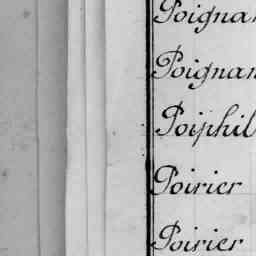 Poignan
Poignan
Poiphil
Poirier
Poirier